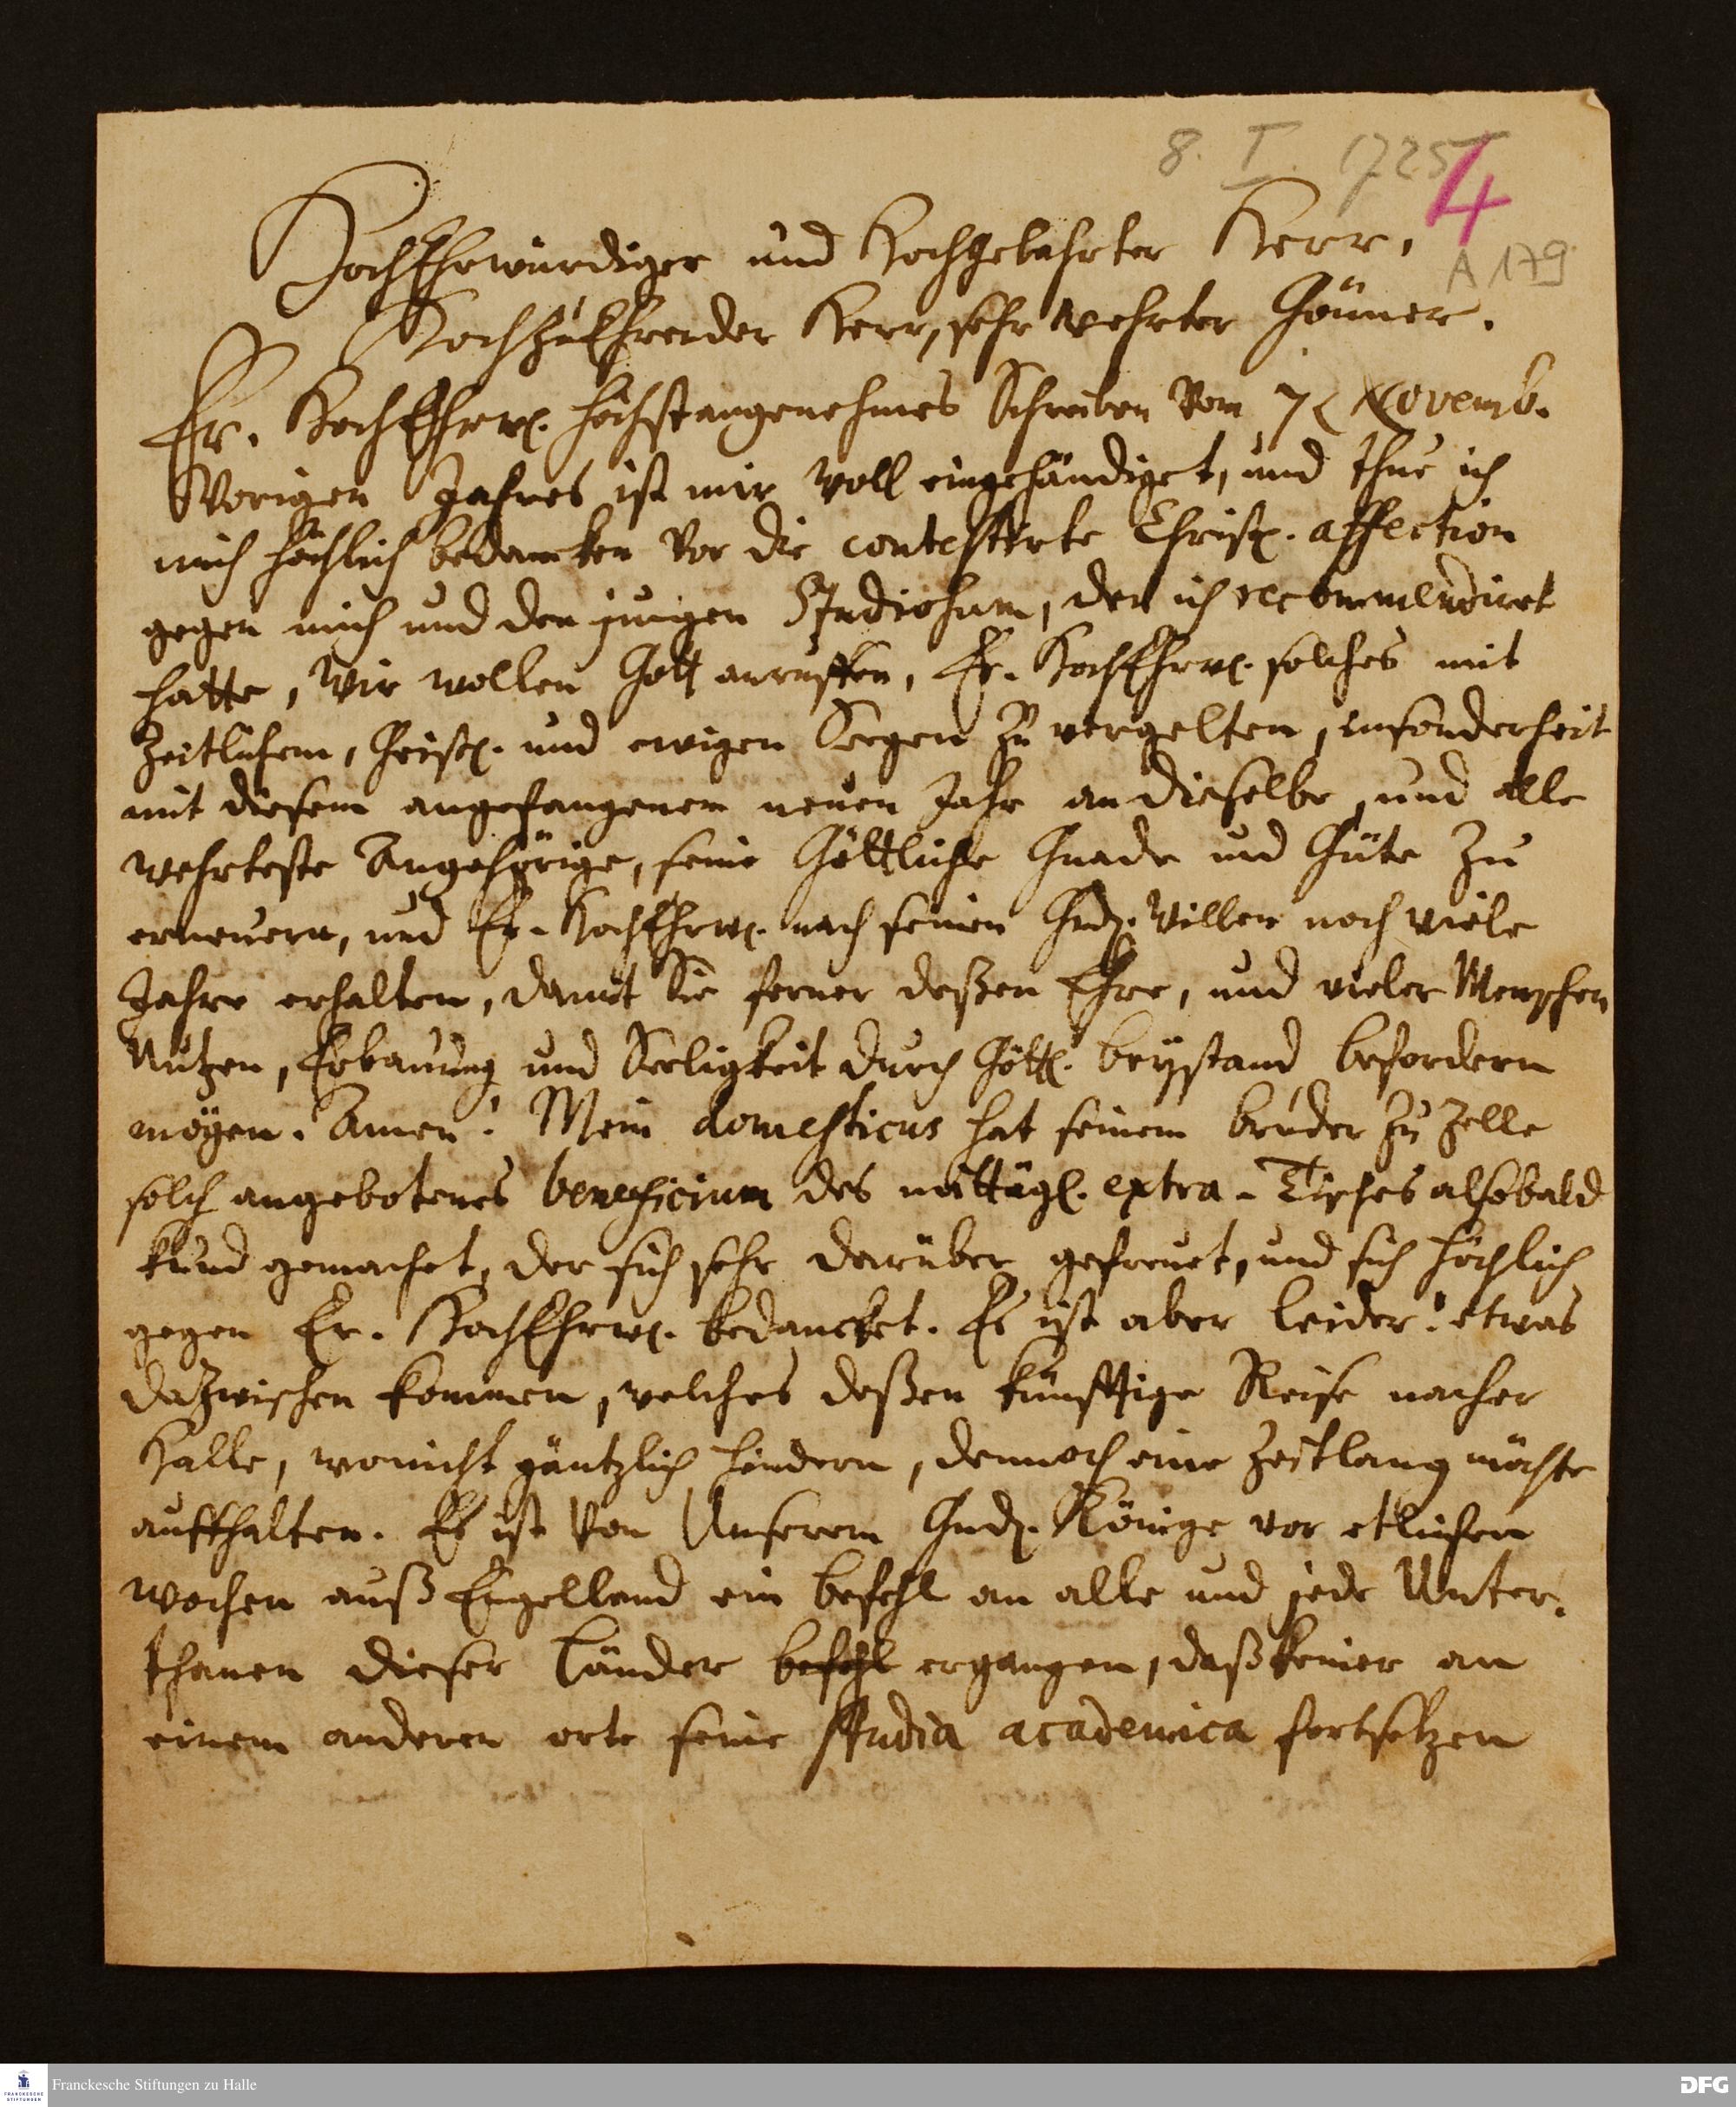 8. I. 1725
4
A 179
HochEhrwürdiger und Hochgelahrter Herr,
HochzuEhrender Herr, sehr wehrter Gönner.
Ew. HochEhrw. höchstangenehmes Schreiben vom 7 Novemb.
Vorigen Jahres ist mir woll eingehändiget, und thue ich
mich höchlich bedancken vor die contestirte Christl. affection
gegen mich und den jungen Studiosum, den ich recommendiret
hatte, Wir wollen Gott anruffen, Ew. HochEhrw. solches mit
zeitlichem, Geistl. und ewigen Seegen zu vergelten, insonderheit
mit diesem angefangenem neuen Jahr an dieselbe, und alle
wehrteste Angehörige, seine Göttliche Gnade und Güte zu
erneuern, und Ew. HochEhrw. nach seinen Gnd. Willen noch viele
Jahre erhalten, damit Sie ferner deßen Ehre, und vieler Menschen
Nutzen, Erbauung und Seeligkeit durch Göttl. beystand befordern
mögen. Amen! Mein domesticus hat seinem bruder zu Zelle
solch angebotenes beneficium des mittägl. extra-Tisches alsobald
kund gemachet, der sich sehr darüber gefreuet, und sich höchlich
gegen Ew. HochEhrw. bedancket. Es ist aber leider! etwas
dazwischen kommen, welches deßen künfftige Reise nacher
Halle, wonicht gäntzlich hindern, dennoch eine Zeitlang möchte
auffhalten. Es ist von Unserem Gnd. Könige vor etlichen
wochen auß Engelland ein befehl an alle und jede Unter-
thanen dieser Länder befehl ergangen, daß keiner an
einem anderen orte seine studia academica fortsetzen
Franckesche Stiftungen zu Halle
FRANCKESCHE STIFTUNGEN
DFG